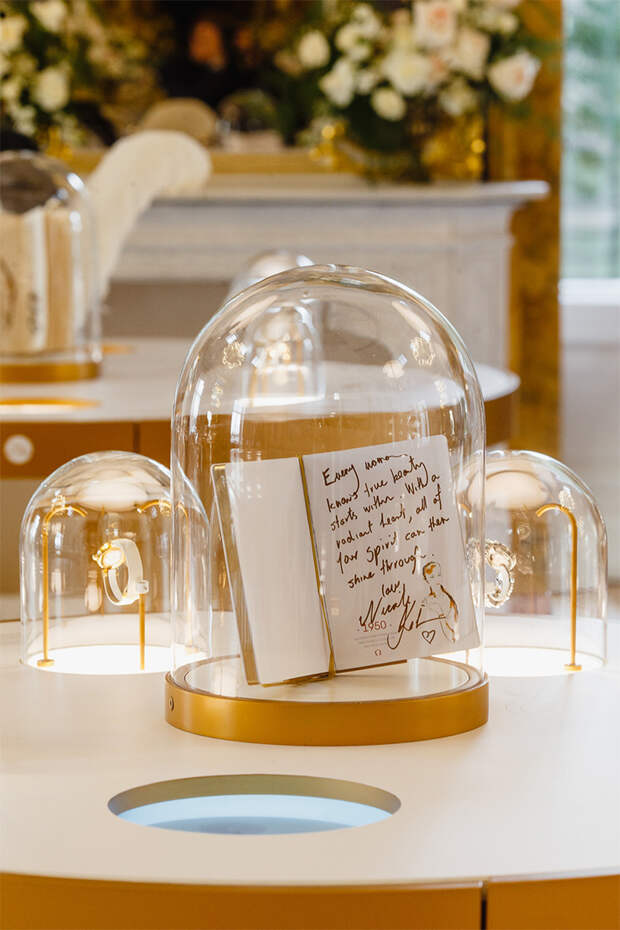 Every woman
knows true beauty
starts within. With a
radiant heart, all of
your spirit can then
shine through.
love
Nicole
1950
Ω